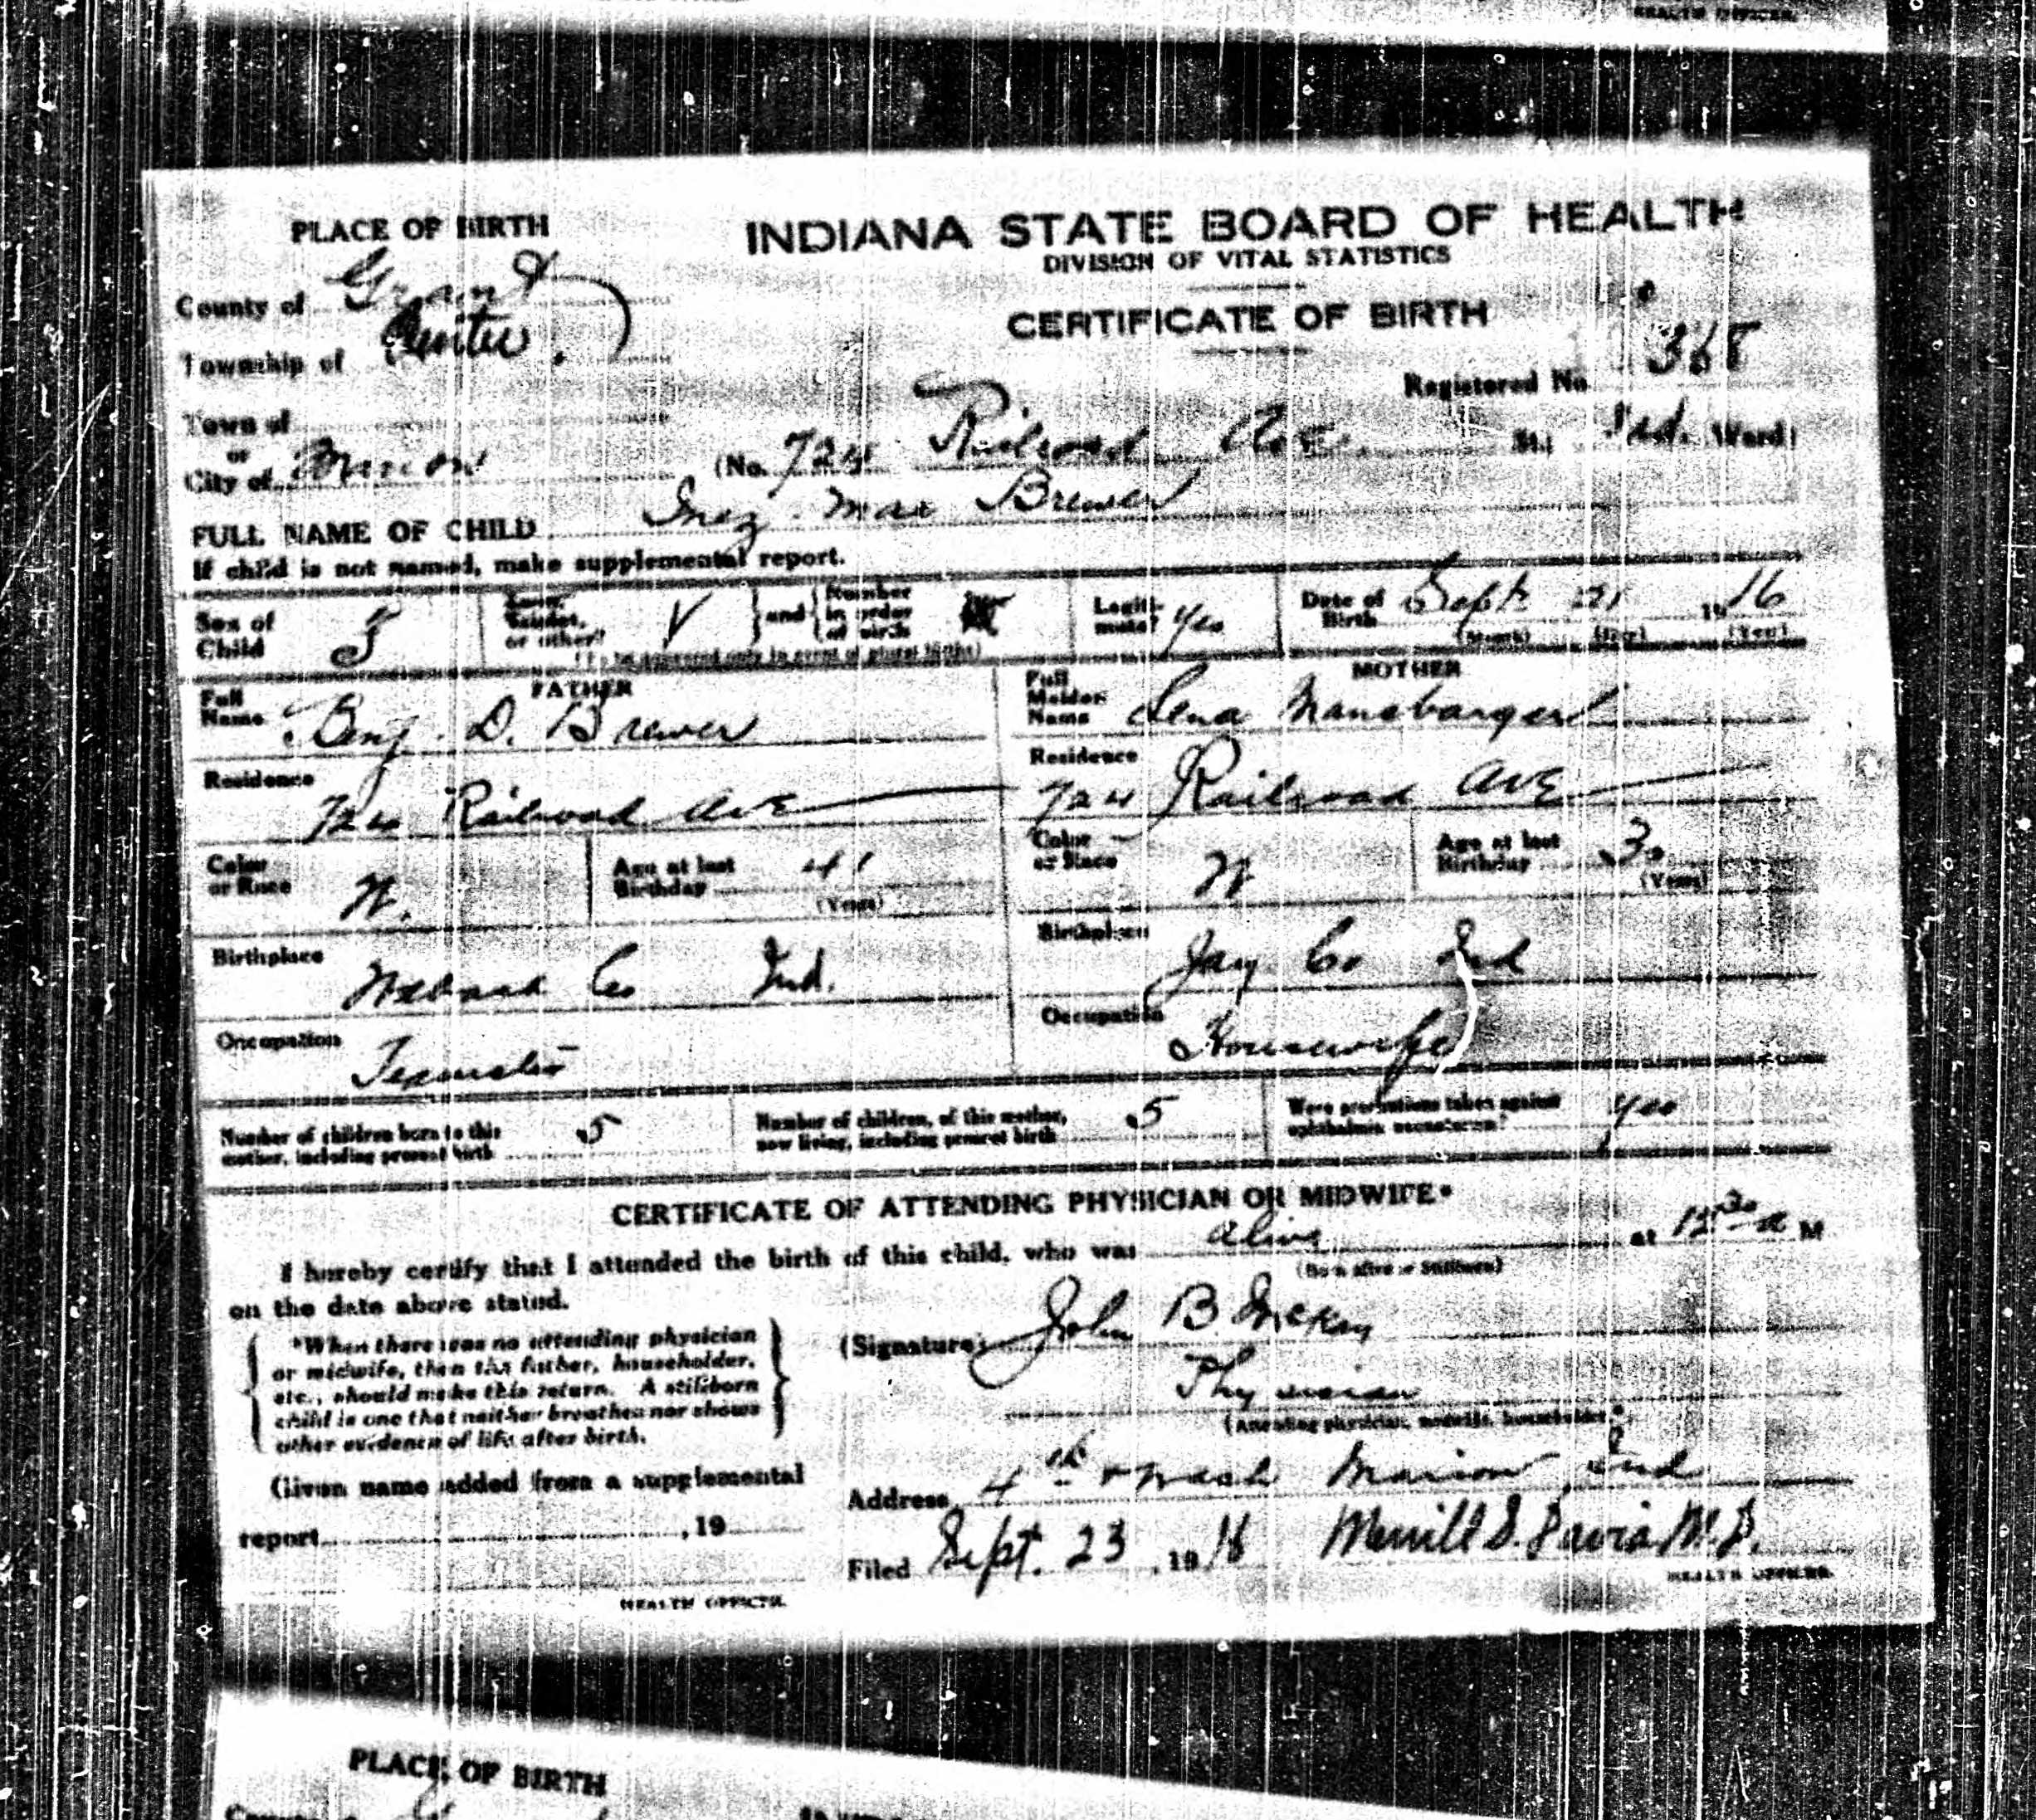 HEALTH OFFICER.
PLACE OF BIRTH
INDIANA STATE BOARD OF HEALTH
DIVISION OF VITAL STATISTICS
CERTIFICATE OF BIRTH
County of Grant
Township of Center
Registered No. 368
Town of
or
City of Marion (No. 724 Railroad Ave St.; Ward)
FULL NAME OF CHILD Inez Mae Brewer
If child is not named, make supplemental report.
Sex of Child F
Twin, Triplet, or other? V and Number in order of birth
(To be answered only in event of plural births)
Legitimate? Yes
Date of Birth Sept 21 1916
(Month) (Day) (Year)
FATHER
Full Name Benj. D. Brewer
MOTHER
Full Maiden Name Lena
Residence 724 Railroad Ave
Residence 724 Railroad Ave
Color or Race W.
Age at last Birthday 41
(Years)
Color or Race W
Age at last Birthday 30
(Years)
Birthplace Wabash Co Ind.
Birthplace Jay Co Ind
Occupation Teamster
Occupation Housewife
Number of children born to this mother, including present birth 5
Number of children, of this mother, now living, including present birth 5
Were precautions taken against ophthalmia neonatorum? Yes
CERTIFICATE OF ATTENDING PHYSICIAN OR MIDWIFE*
I hereby certify that I attended the birth of this child, who was alive at 12 30 a M
(Born alive or Stillborn)
on the date above stated.
*When there was no attending physician
or midwife, then the father, householder,
etc., should make this return. A stillborn
child is one that neither breathes nor shows
other evidence of life after birth.
(Signature) John B. McKay
Physician
(Attending physician, midwife, householder.*)
Given name added from a supplemental
report , 19
HEALTH OFFICER.
Address 4th & Wash Marion, Ind
Filed Sept. 23, 1916 Merrill S. Davis M.D.
HEALTH OFFICER.
PLACE OF BIRTH